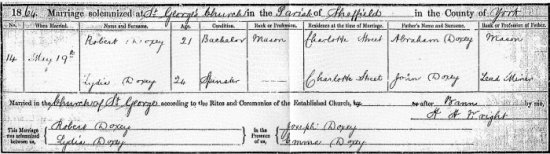 1864. Marriage solemnized at St. George's Church in the Parish of Sheffield in the County of York
No. When Married. Name and Surname. Age. Condition. Rank or Profession. Residence at the time of Marriage. Father's Name and Surname. Rank or Profession of Father.
14 May 19th Robert Doxey 21 Bachelor Mason Charlotte Street Abraham Doxey Mason
Lydia Doxey 24 Spinster Charlotte Street John Doxey Lead Miner
Married in the Church of St. George according to the Rites and Ceremonies of the Established Church, by or after Banns by me,
H H Wright
This Marriage was solemnized between us, Robert Doxey Lydia Doxey In the Presence of us, Joseph Doxey Emma Doxey